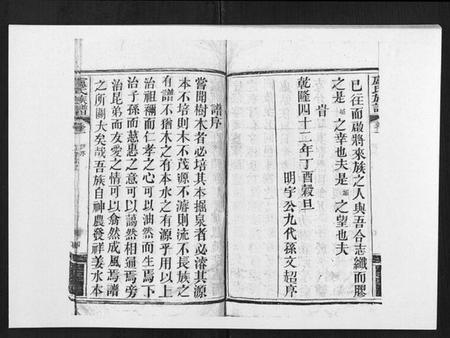 已往而啟將來族之人與吾合志纘而膠
之是 之幸也夫是 之望也夫
旹
乾隆四十二年丁酉穀旦
明宇公九代孫文紹序
譜序
嘗聞樹木者必培其本掘泉者必濬其源
本不培則木不茂源不濬則流不長族之
有譜不猶木之有本水之有源乎用以上
治祖禰而仁孝之心可以油然而生焉下
治子孫而慈惠之意可以藹然相孚焉旁
治昆弟而友愛之情可以翕然成風焉譜
之所關大矣哉吾族自神農發祥姜水本
氏族譜